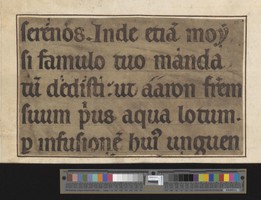 serēnos. Inde etiā moy
si famulo tuo manda
tū dedisti: ut aaron frēm
suum p̄us aqua lotum.
p infusionē huiꝰ unguen